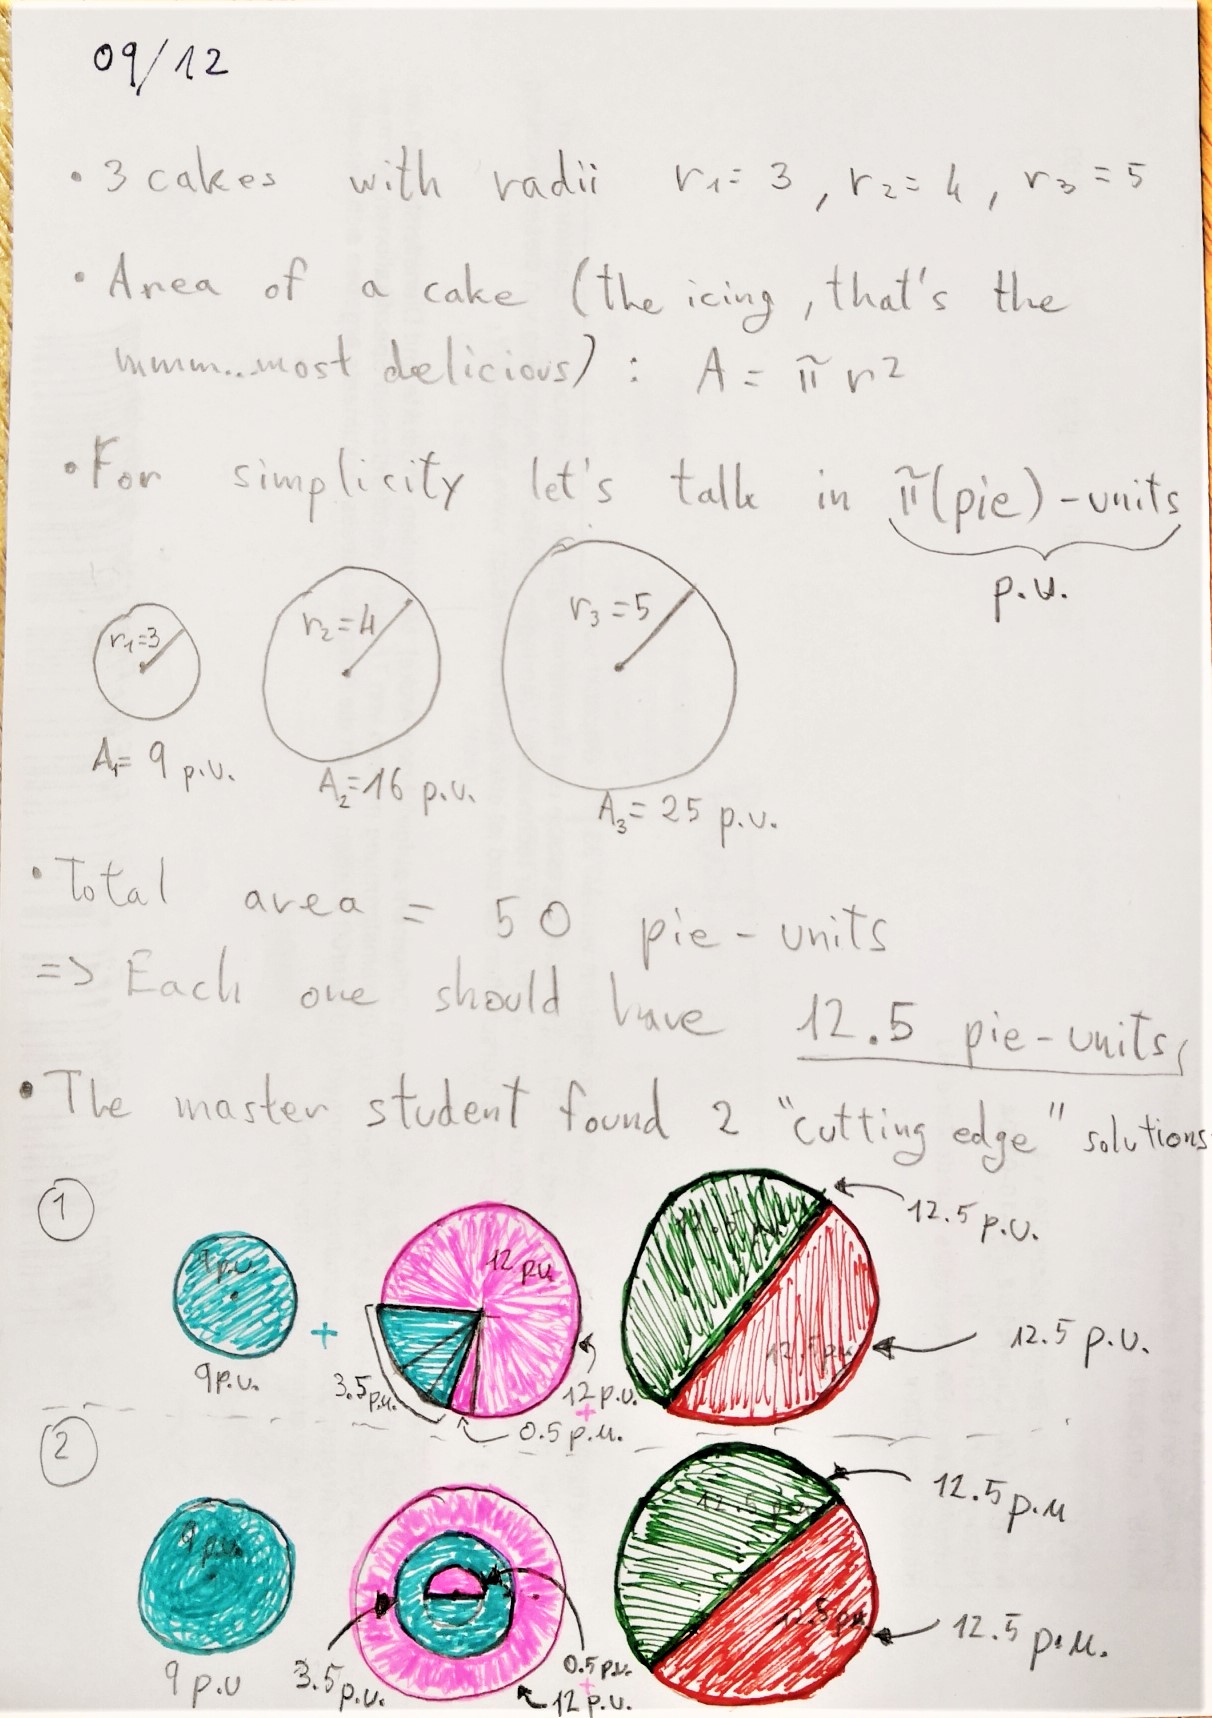 09/12
• 3 cakes with radii r₁= 3, r₂= 4, r₃ = 5
• Area of a cake (the icing, that's the
mmm...most delicious) : A = π r²
• For simplicity let's talk in π(pie)-units
p.u.
r₁=3
r₂=4
r₃=5
A₁= 9 p.u.
A₂=16 p.u.
A₃= 25 p.u.
• Total area = 50 pie-units
=> Each one should have 12.5 pie-units
• The master student found 2 "cutting edge" solutions
1
9 p.u.
12 p.u.
12.5 p.u.
12.5 p.u.
12.5 p.u.
12.5 p.u.
+
9 p.u.
3.5 p.u.
12 p.u.
+
0.5 p.u.
2
9 p.u.
12.5 p.u.
12.5 p.u
12.5 p.u
12.5 p.u.
9 p.u
3.5 p.u.
0.5 p.u.
+
12 p.u.